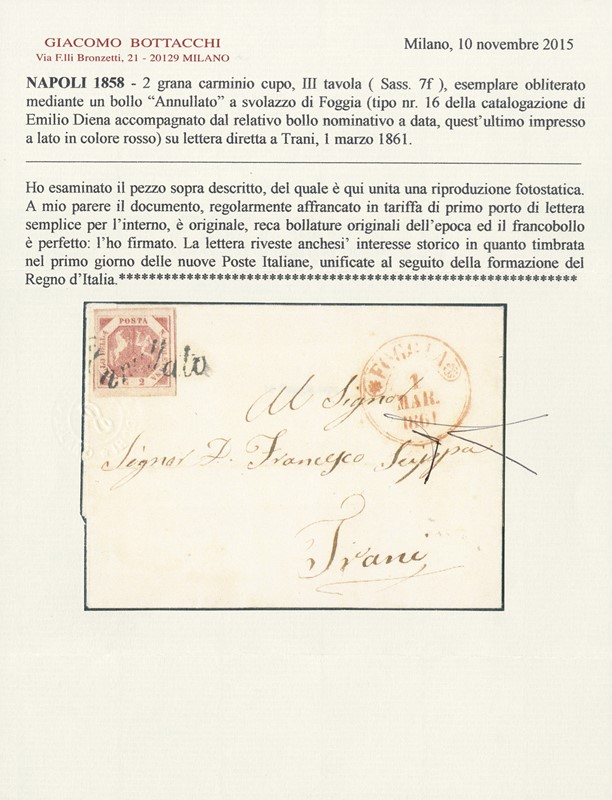 GIACOMO BOTTACCHI
Via F.lli Bronzetti, 21 - 20129 MILANO
Milano, 10 novembre 2015
NAPOLI 1858 - 2 grana carminio cupo, III tavola ( Sass. 7f ), esemplare obliterato
mediante un bollo “Annullato” a svolazzo di Foggia (tipo nr. 16 della catalogazione di
Emilio Diena accompagnato dal relativo bollo nominativo a data, quest’ultimo impresso
a lato in colore rosso) su lettera diretta a Trani, 1 marzo 1861.
Ho esaminato il pezzo sopra descritto, del quale è qui unita una riproduzione fotostatica.
A mio parere il documento, regolarmente affrancato in tariffa di primo porto di lettera
semplice per l’interno, è originale, reca bollature originali dell’epoca ed il francobollo
è perfetto: l’ho firmato. La lettera riveste anchesi’ interesse storico in quanto timbrata
nel primo giorno delle nuove Poste Italiane, unificate al seguito della formazione del
Regno d’Italia.****************************************************************
POSTA
G. 2
Annullato
FOGGIA
1
MAR.
1861
Al Signor
Signor D. Francesco
Trani